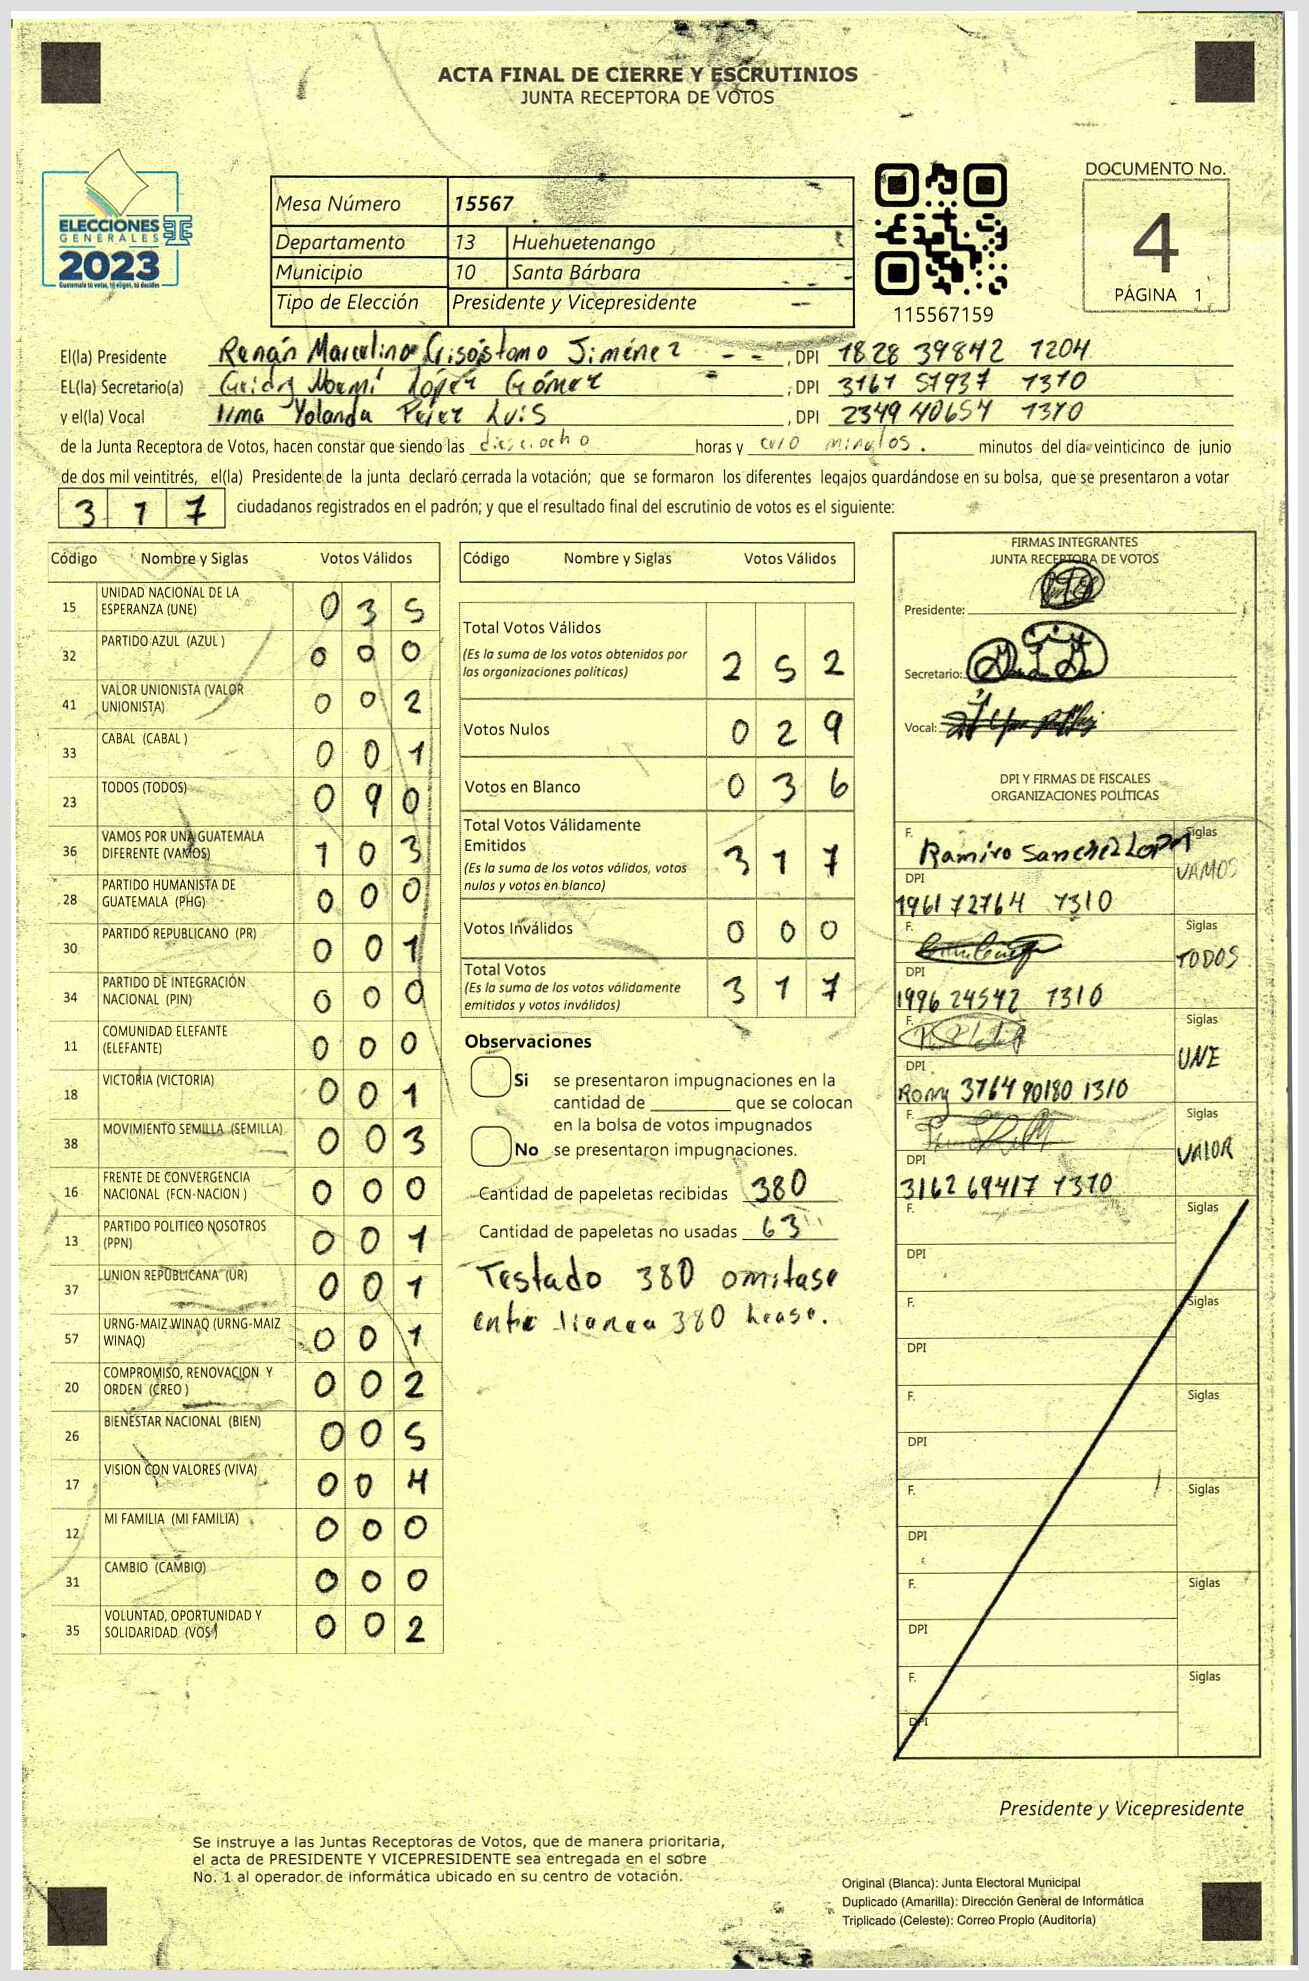 ACTA FINAL DE CIERRE Y ESCRUTINIOS
JUNTA RECEPTORA DE VOTOS
ELECCIONES
GENERALES
2023
Guatemala tú votas, tú eliges, tú decides
Mesa Número 15567
Departamento 13 Huehuetenango
Municipio 10 Santa Bárbara
Tipo de Elección Presidente y Vicepresidente
115567159
DOCUMENTO No.
4
PÁGINA 1
El(la) Presidente Renán Marcelino Crisóstomo Jiménez - - , DPI 1828 39842 1204
EL(la) Secretario(a) Noemí López Gómez ; DPI 3161 51937 1310
y el(la) Vocal Irma Yolanda Pérez Luis , DPI 2349 40654 1310
de la Junta Receptora de Votos, hacen constar que siendo las dieciocho horas y cero minutos. minutos del día veinticinco de junio
de dos mil veintitrés, el(la) Presidente de la junta declaró cerrada la votación; que se formaron los diferentes legajos guardándose en su bolsa, que se presentaron a votar
317 ciudadanos registrados en el padrón; y que el resultado final del escrutinio de votos es el siguiente:
Código Nombre y Siglas Votos Válidos
15 UNIDAD NACIONAL DE LA
ESPERANZA (UNE) 0 3 5
32 PARTIDO AZUL (AZUL ) 0 0 0
41 VALOR UNIONISTA (VALOR
UNIONISTA) 0 0 2
33 CABAL (CABAL ) 0 0 1
23 TODOS (TODOS) 0 9 0
36 VAMOS POR UNA GUATEMALA
DIFERENTE (VAMOS) 1 0 3
28 PARTIDO HUMANISTA DE
GUATEMALA (PHG) 0 0 0
30 PARTIDO REPUBLICANO (PR) 0 0 1
34 PARTIDO DE INTEGRACIÓN
NACIONAL (PIN) 0 0 0
11 COMUNIDAD ELEFANTE
(ELEFANTE) 0 0 0
18 VICTORIA (VICTORIA) 0 0 1
38 MOVIMIENTO SEMILLA (SEMILLA) 0 0 3
16 FRENTE DE CONVERGENCIA
NACIONAL (FCN-NACION ) 0 0 0
13 PARTIDO POLITICO NOSOTROS
(PPN) 0 0 1
37 UNION REPUBLICANA (UR) 0 0 1
57 URNG-MAIZ WINAQ (URNG-MAIZ
WINAQ) 0 0 1
20 COMPROMISO, RENOVACION Y
ORDEN (CREO ) 0 0 2
26 BIENESTAR NACIONAL (BIEN) 0 0 5
17 VISION CON VALORES (VIVA) 0 0 4
12 MI FAMILIA (MI FAMILIA) 0 0 0
31 CAMBIO (CAMBIO) 0 0 0
35 VOLUNTAD, OPORTUNIDAD Y
SOLIDARIDAD (VOS) 0 0 2
Código Nombre y Siglas Votos Válidos
Total Votos Válidos
(Es la suma de los votos obtenidos por
las organizaciones políticas) 2 5 2
Votos Nulos 0 2 9
Votos en Blanco 0 3 6
Total Votos Válidamente
Emitidos
(Es la suma de los votos válidos, votos
nulos y votos en blanco) 3 1 7
Votos Inválidos 0 0 0
Total Votos
(Es la suma de los votos válidamente
emitidos y votos inválidos) 3 1 7
Observaciones
Si se presentaron impugnaciones en la
cantidad de ________ que se colocan
en la bolsa de votos impugnados
No se presentaron impugnaciones.
Cantidad de papeletas recibidas 380
Cantidad de papeletas no usadas 63
Testado 380 omitase
entre lineas 380 lease.
FIRMAS INTEGRANTES
JUNTA RECEPTORA DE VOTOS
Presidente:
Secretario:
Vocal:
DPI Y FIRMAS DE FISCALES
ORGANIZACIONES POLÍTICAS
F. Ramiro Sanchez Lopez Siglas
VAMOS
DPI
1961 72764 1310
F. Siglas
TODOS
DPI
1996 24542 1310
F. Siglas
UNE
DPI
Rony 3764 90180 1310
F. Siglas
VALOR
DPI
3162 69417 1310
F. Siglas
DPI
F. Siglas
DPI
F. Siglas
DPI
F. Siglas
DPI
F. Siglas
DPI
F. Siglas
DPI
Presidente y Vicepresidente
Se instruye a las Juntas Receptoras de Votos, que de manera prioritaria,
el acta de PRESIDENTE Y VICEPRESIDENTE sea entregada en el sobre
No. 1 al operador de informática ubicado en su centro de votación.
Original (Blanca): Junta Electoral Municipal
Duplicado (Amarilla): Dirección General de Informática
Triplicado (Celeste): Correo Propio (Auditoría)